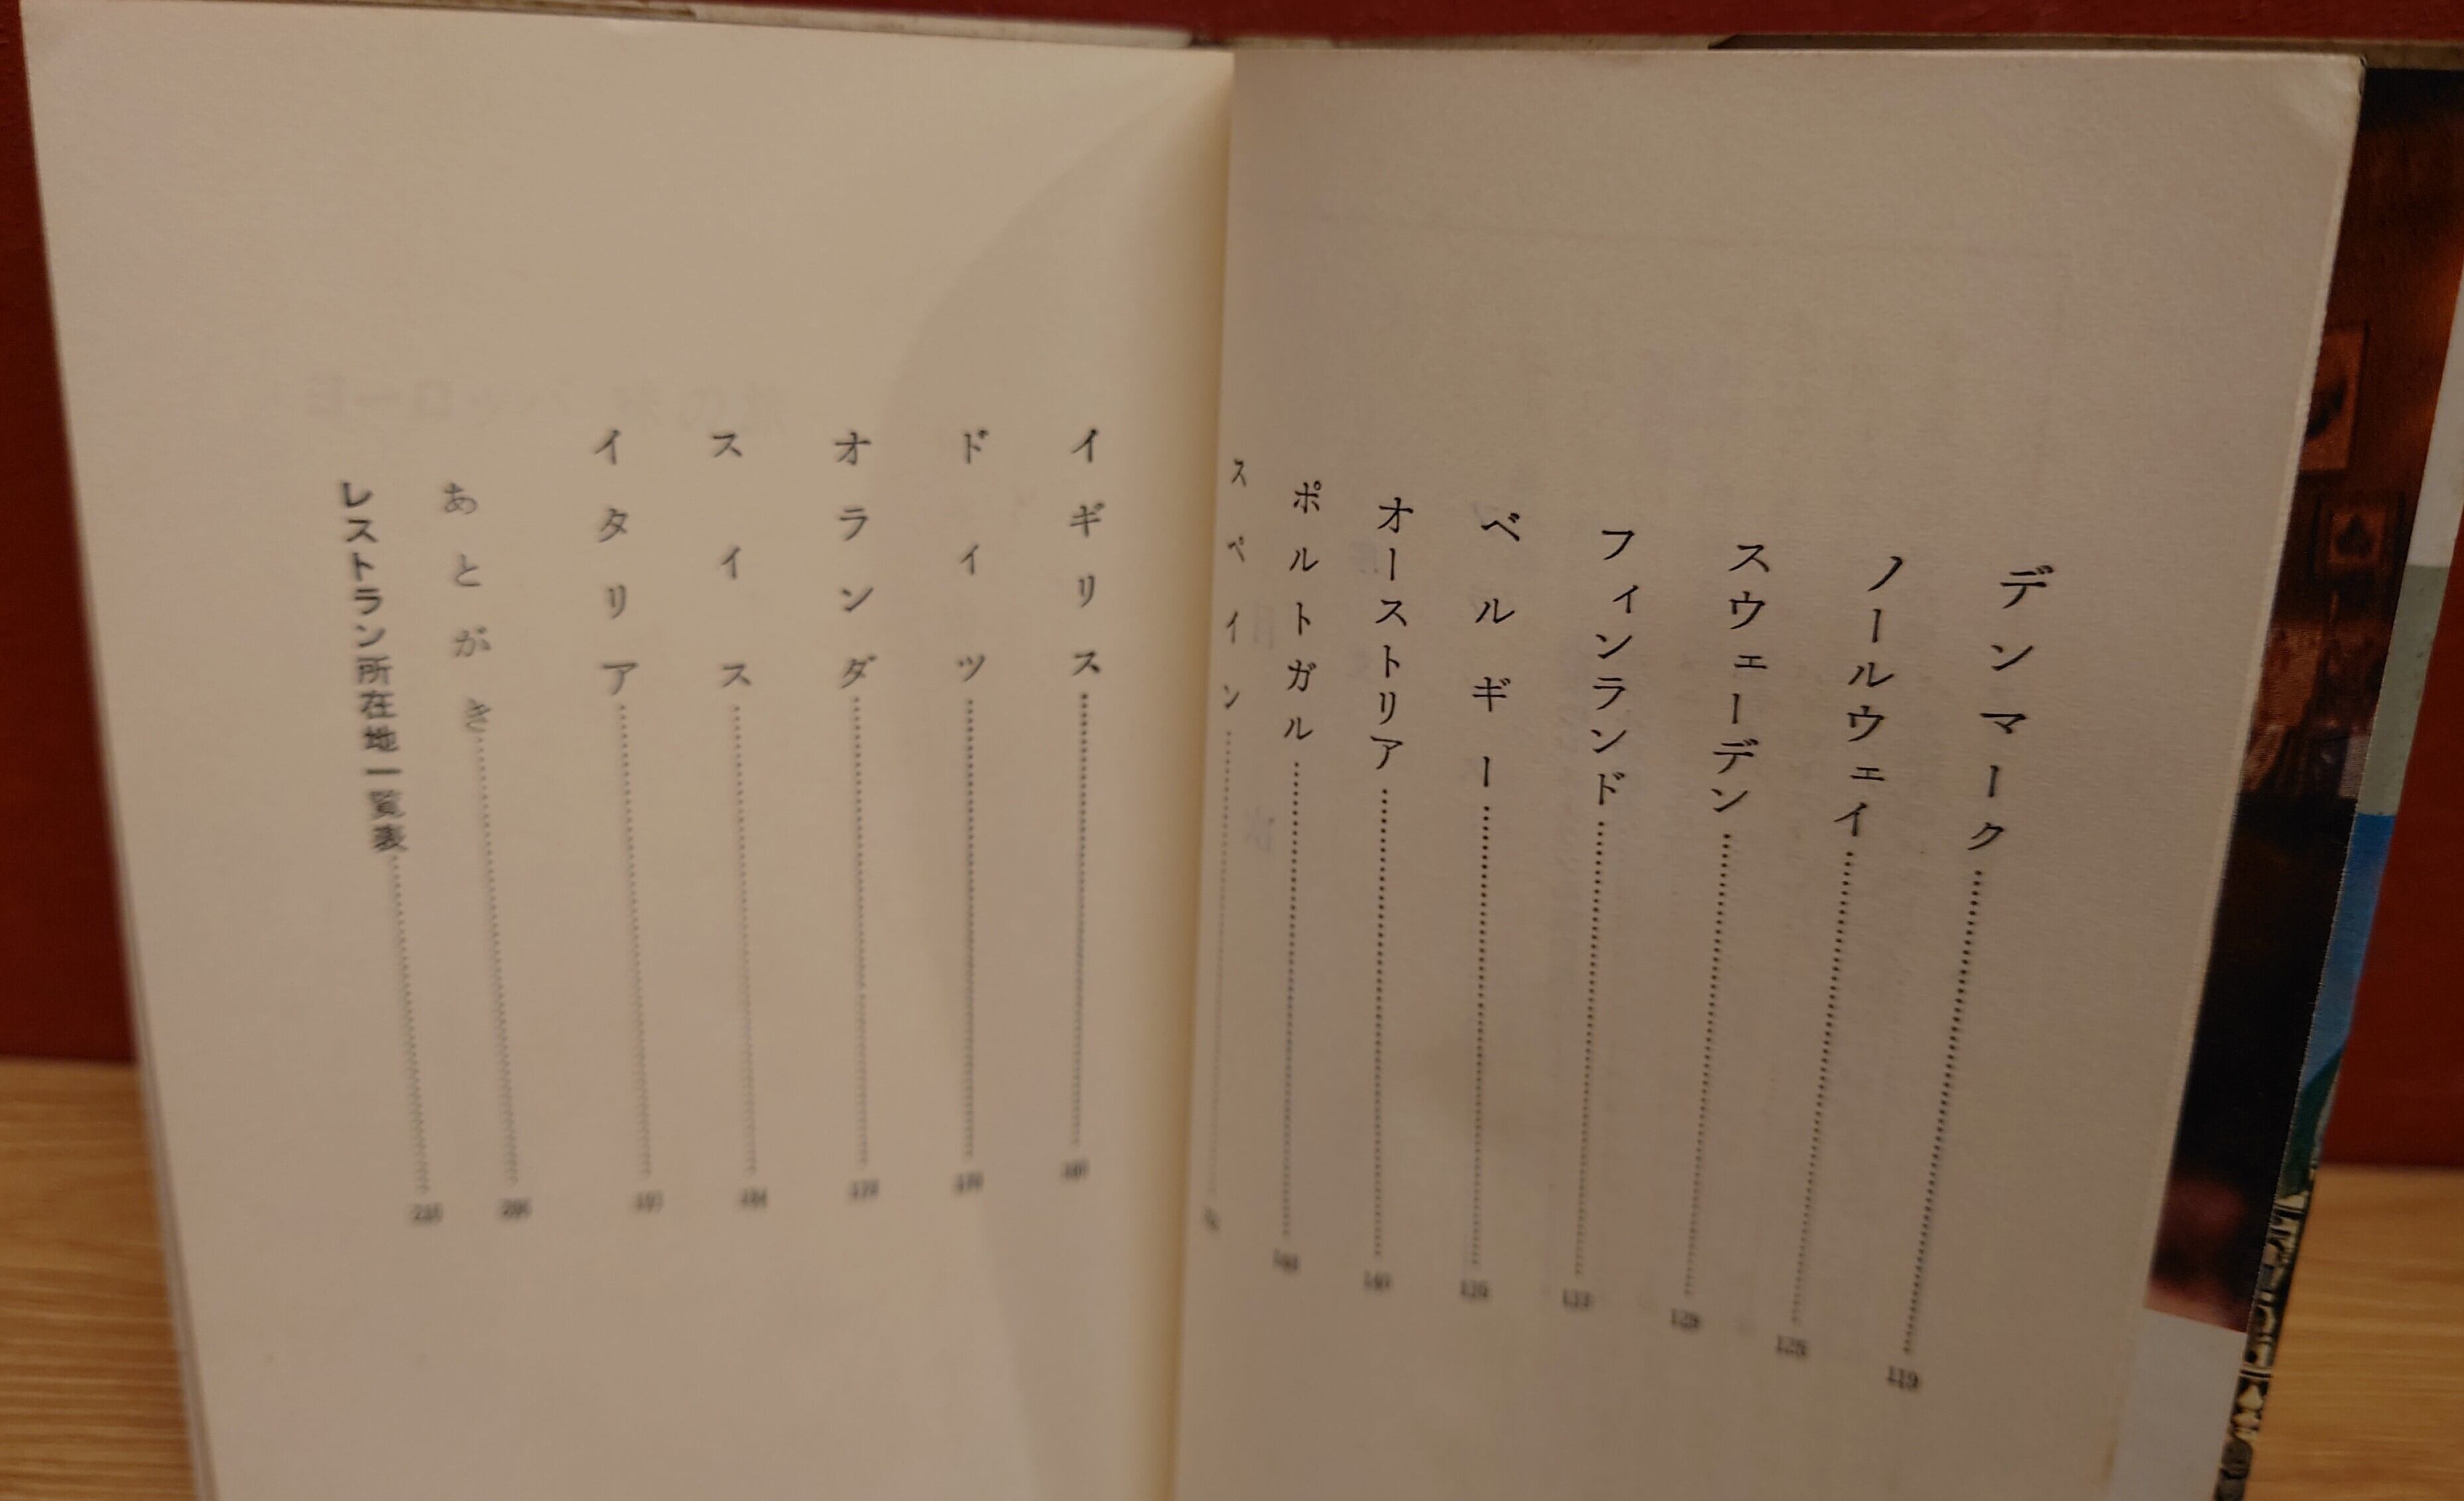 デンマーク……119
ノールウェイ……125
スウェーデン……128
フィンランド……133
ベルギー……136
オーストリア……140
ポルトガル
スペイン
イギリス
ドイツ
オランダ
スイス
イタリア
あとがき
レストラン所在地一覧表